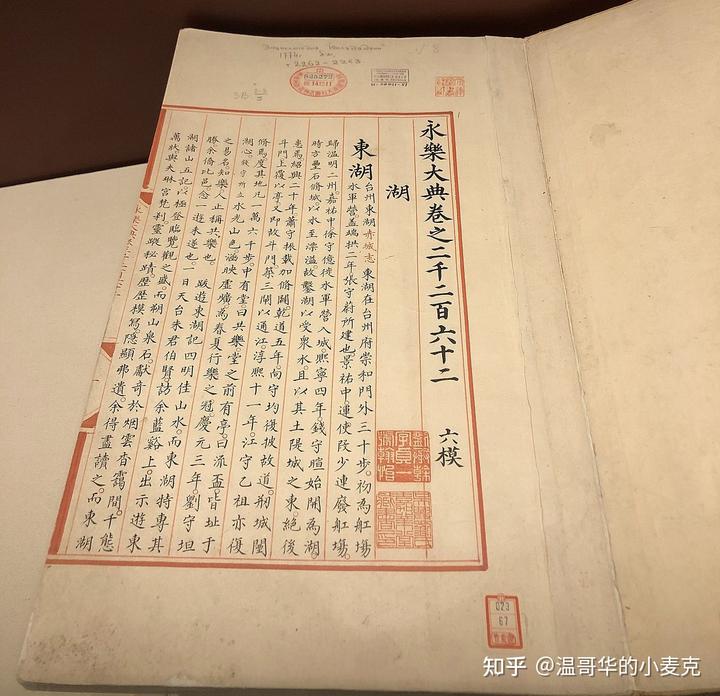 永樂大典卷之二千二百六十二　六模
湖
東湖
台州東湖赤城志。東湖在台州府崇和門外三十步。初為舡塲
水軍營。蓋端拱二年張守蔚所建也。景祐中。運使段少連廢舡塲。
歸溫明二州。嘉祐中徐守億徙水軍營入城。熙寧四年。錢守暄始開為湖。
時方壘石脩城。以水至漂溢。故鑿湖以受衆水。且以其土隄城之東。絕後
患焉。紹興二十年。蕭守振載加脩闢。乾道五年。向守均復披故道。剏城闉
斗門上。覆以亭。又即故斗門築三閘以通江。淳熙十一年。江守乙祖亦復
脩焉。度其地凡一萬六千步。中有堂。曰共樂。堂之前有亭。曰流盃。皆址于
湖心。錢守所立水光山色。涵映虛曠。為春夏行樂之冠。慶元三年。劉守坦
之易名知樂。人止稱共樂也。跋遊東湖記四明佳山水。而東湖特專其
勝。余僑比邑。念一遊未遂也。一日天台朱君伯賢訪余藍谿上。出示遊東
湖諸山五記。以極登臨覽觀之盛。而朔山泉石。獻奇於烟雲杳靄間。千態
萬狀。與夫琳宮梵刹。靈蹤秘蹟。歷歷模寫。隱顯弗遺。余得盡讀之。而東湖
023
67
知乎 @温哥华的小麦克